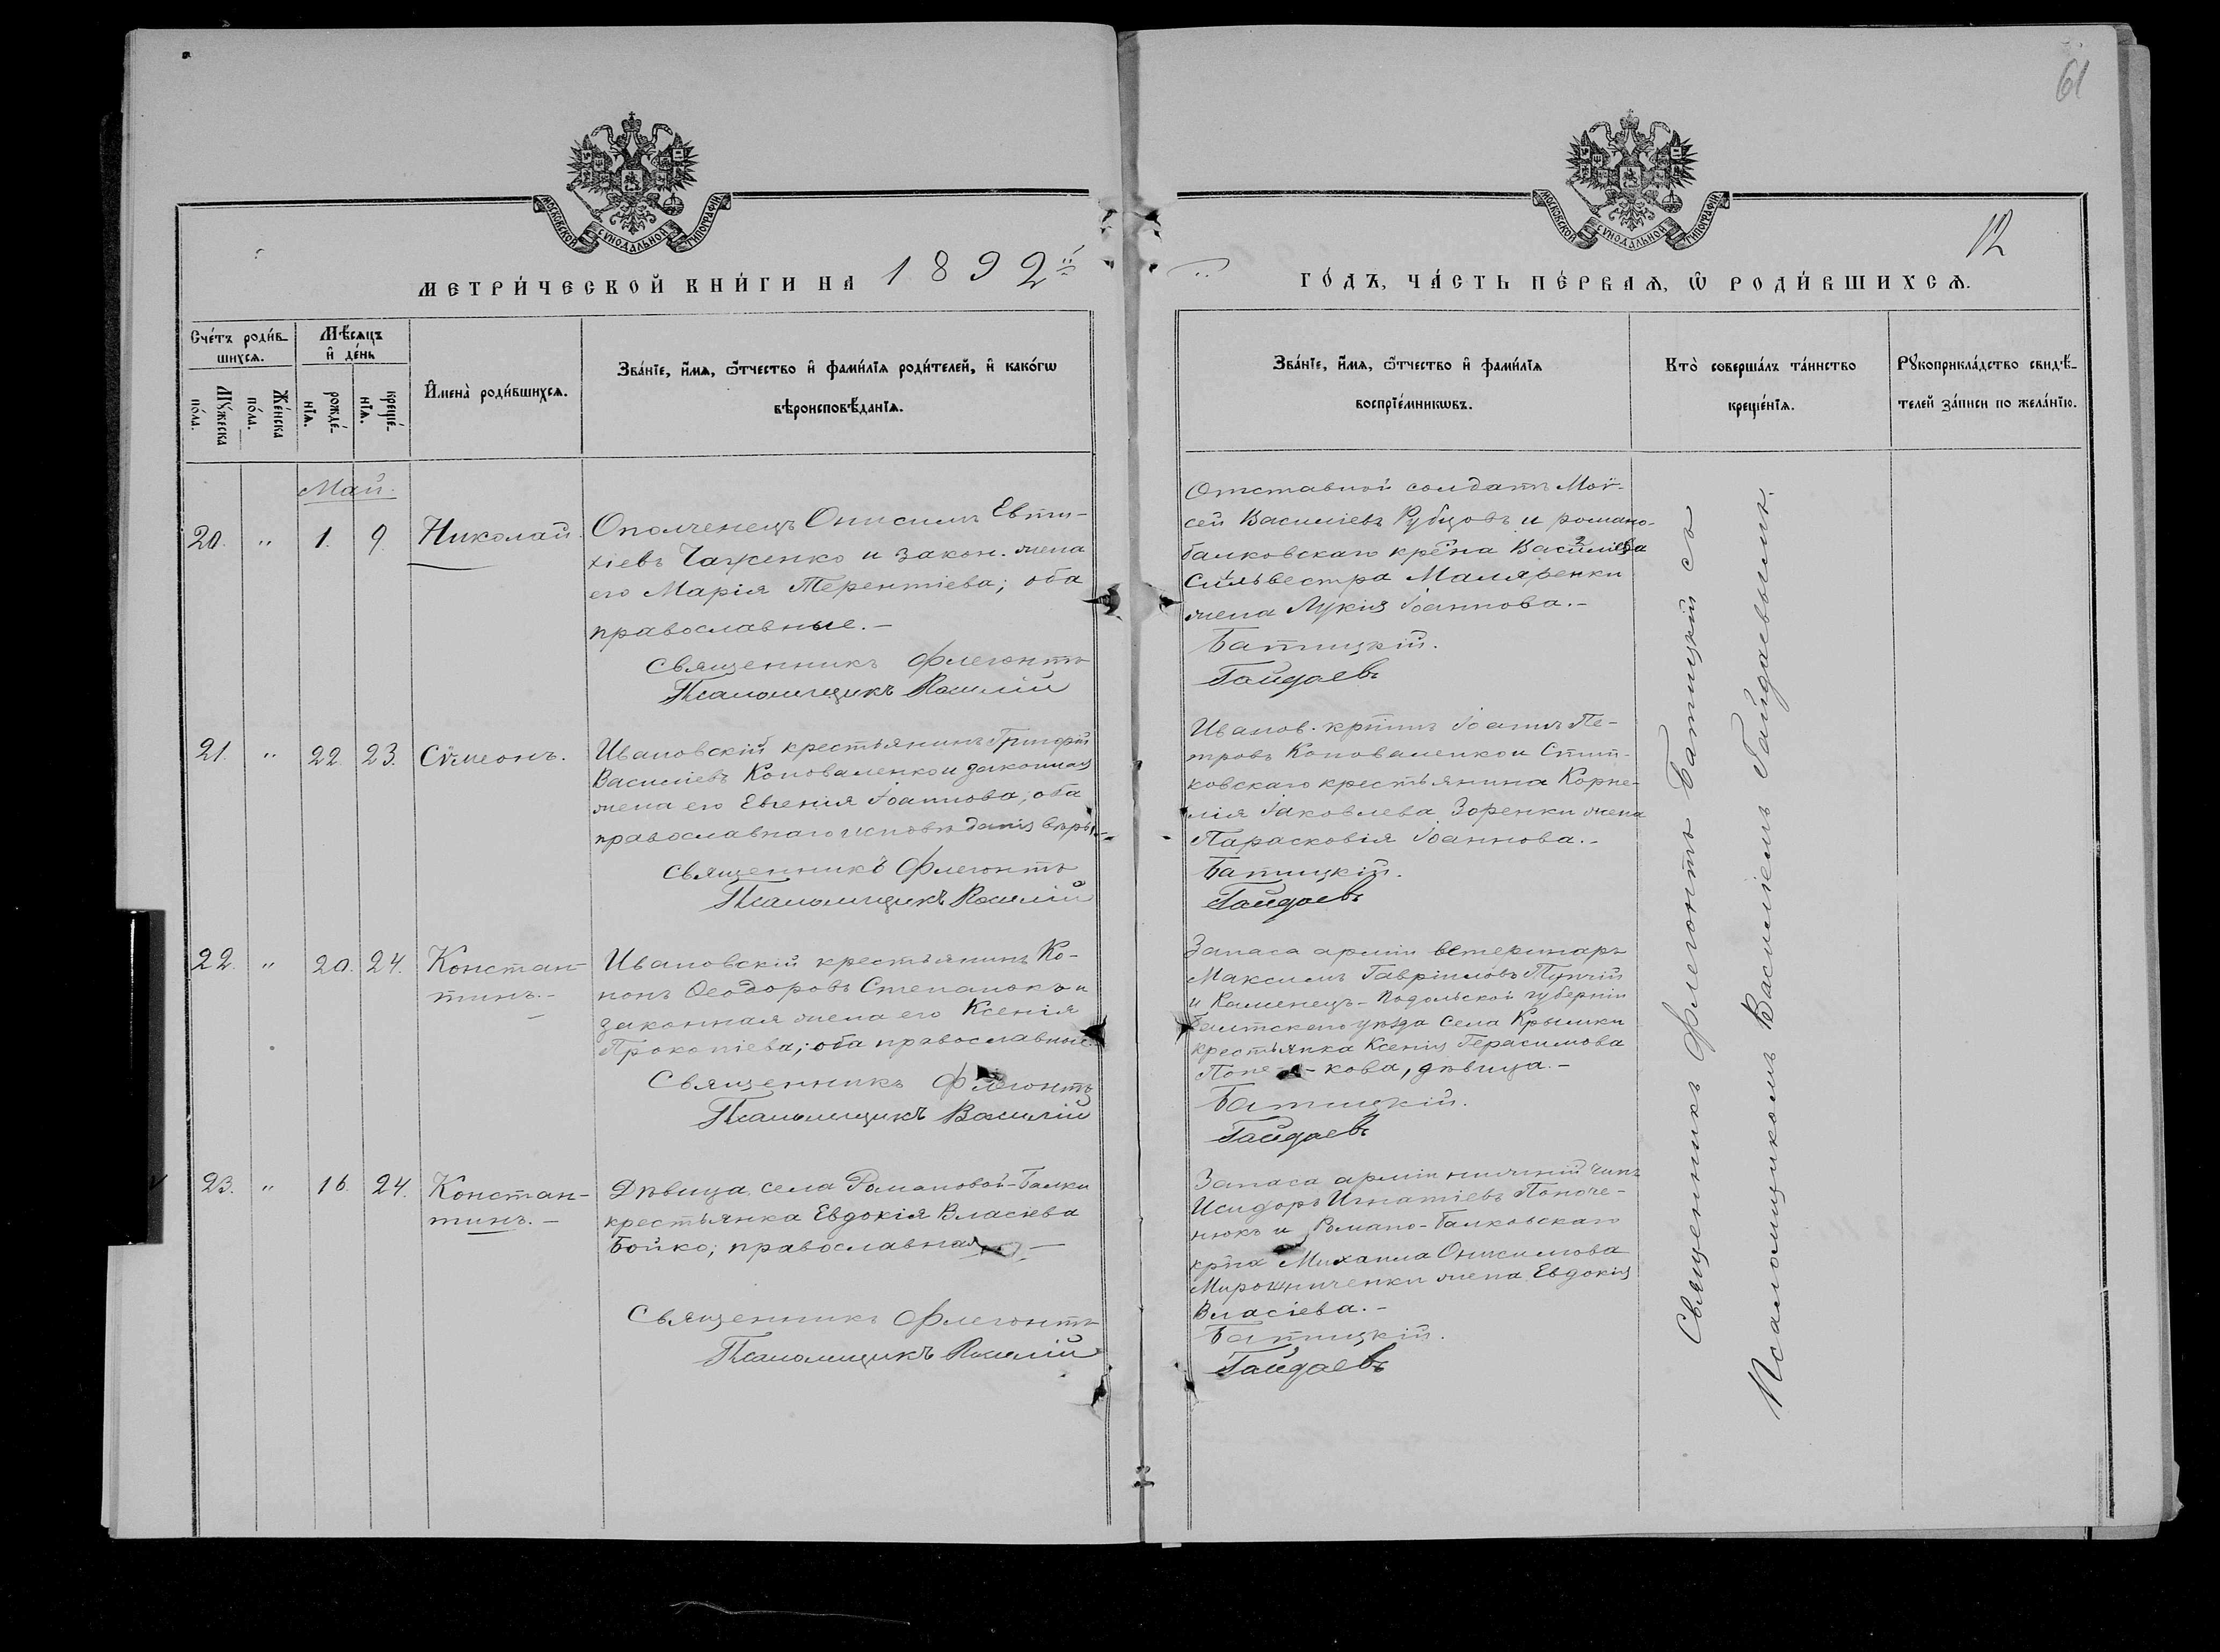 61
12
МОСКОВСКОЙ СѴНОДАЛЬНОЙ ТИПОГРАФІИ
МОСКОВСКОЙ СѴНОДАЛЬНОЙ ТИПОГРАФІИ
МЕТРИ́ЧЕСКОЙ КНИ́ГИ НА 1892й
ГО́ДЪ, ЧА́СТЬ ПЕ́РВАѦ, Ѡ҆ РОДИ́ВШИХСѦ.
Сче́тъ роди́в-
шихсѧ.
Мꙋ́жеска
по́ла.
Же́нска
по́ла.
Мѣ́сѧцъ
и҆ де́нь
рожде́-
нїѧ.
креще́-
нїѧ.
И҆мена̀ роди́вшихсѧ.
Зва́нїе, и҆́мѧ, ѻ҆́тчество и҆ фами́лїѧ роди́телей, и҆ како́гѡ
вѣроисповѣ́данїѧ.
Зва́нїе, и҆́мѧ, ѻ҆́тчество и҆ фами́лїѧ
воспрїе́мникѡвъ.
Кто̀ соверша́лъ та́инство
креще́нїѧ.
Рꙋкоприкла́дство свидѣ́-
телей за́писи по жела́нїю.
Май.
20. " 1. 9. Николай.
Ополченецъ Онисимъ Евти-
хіевъ Чаженко и закон. жена
его Марія Терентіева; оба
православные.-
Священникъ Флегонтъ
Псаломщикъ Василій
Отставной солдатъ Мої-
сей Василіевъ Рубцовъ и романо-
балковскаго кр-на Василіева
Сильвестра Маляренки
жена Лукія Іоаннова.-
Батицкій.
Гайдаевъ
21. " 22. 23. Сѵмеонъ.
Ивановскій крестьянинъ Григорій
Василіевъ Коноваленко и законная
жена его Евгенія Іоаннова; оба
православнаго исповѣданія вѣры.-
Священникъ Флегонтъ
Псаломщикъ Василій
Иванов. кр-нинъ Іоаннъ Пе-
тровъ Коноваленко и
ковскаго крестьянина Корне-
лія Іаковлева Зоренки жена
Парасковія Іоаннова.-
Батицкій.
Гайдаевъ
22. " 20. 24. Констан-
тинъ.-
Ивановскій крестьянинъ Ко-
нонъ Ѳеодоровъ Степанокъ и
законная жена его Ксенія
Прокопіева; оба православные.
Священникъ Флегонтъ
Псаломщикъ Василій
Запаса арміи ветеринаръ
Максимъ Гавріиловъ
и Каменецъ-Подольской губерніи
Балтскаго уѣзда села Крымки
крестьянка Ксенія Герасимова
кова, дѣвица.-
Батицкій.
Гайдаевъ
23. " 16. 24. Констан-
тинъ.-
Дѣвица села Романовой-Балки
крестьянка Евдокія Власіева
Бойко; православная -
Священникъ Флегонтъ
Псаломщикъ Василій
Запаса арміи нижній чинъ
Исидоръ Игнатіевъ Поноче-
нюкъ и Романо-Балковскаго
кр-на Михаила Онисимова
Мирошниченки жена Евдокія
Власіева.-
Батицкій.
Гайдаевъ
Священникъ Флегонтъ Батицкій съ
Псаломщикомъ Василіемъ Гайдаевымъ.